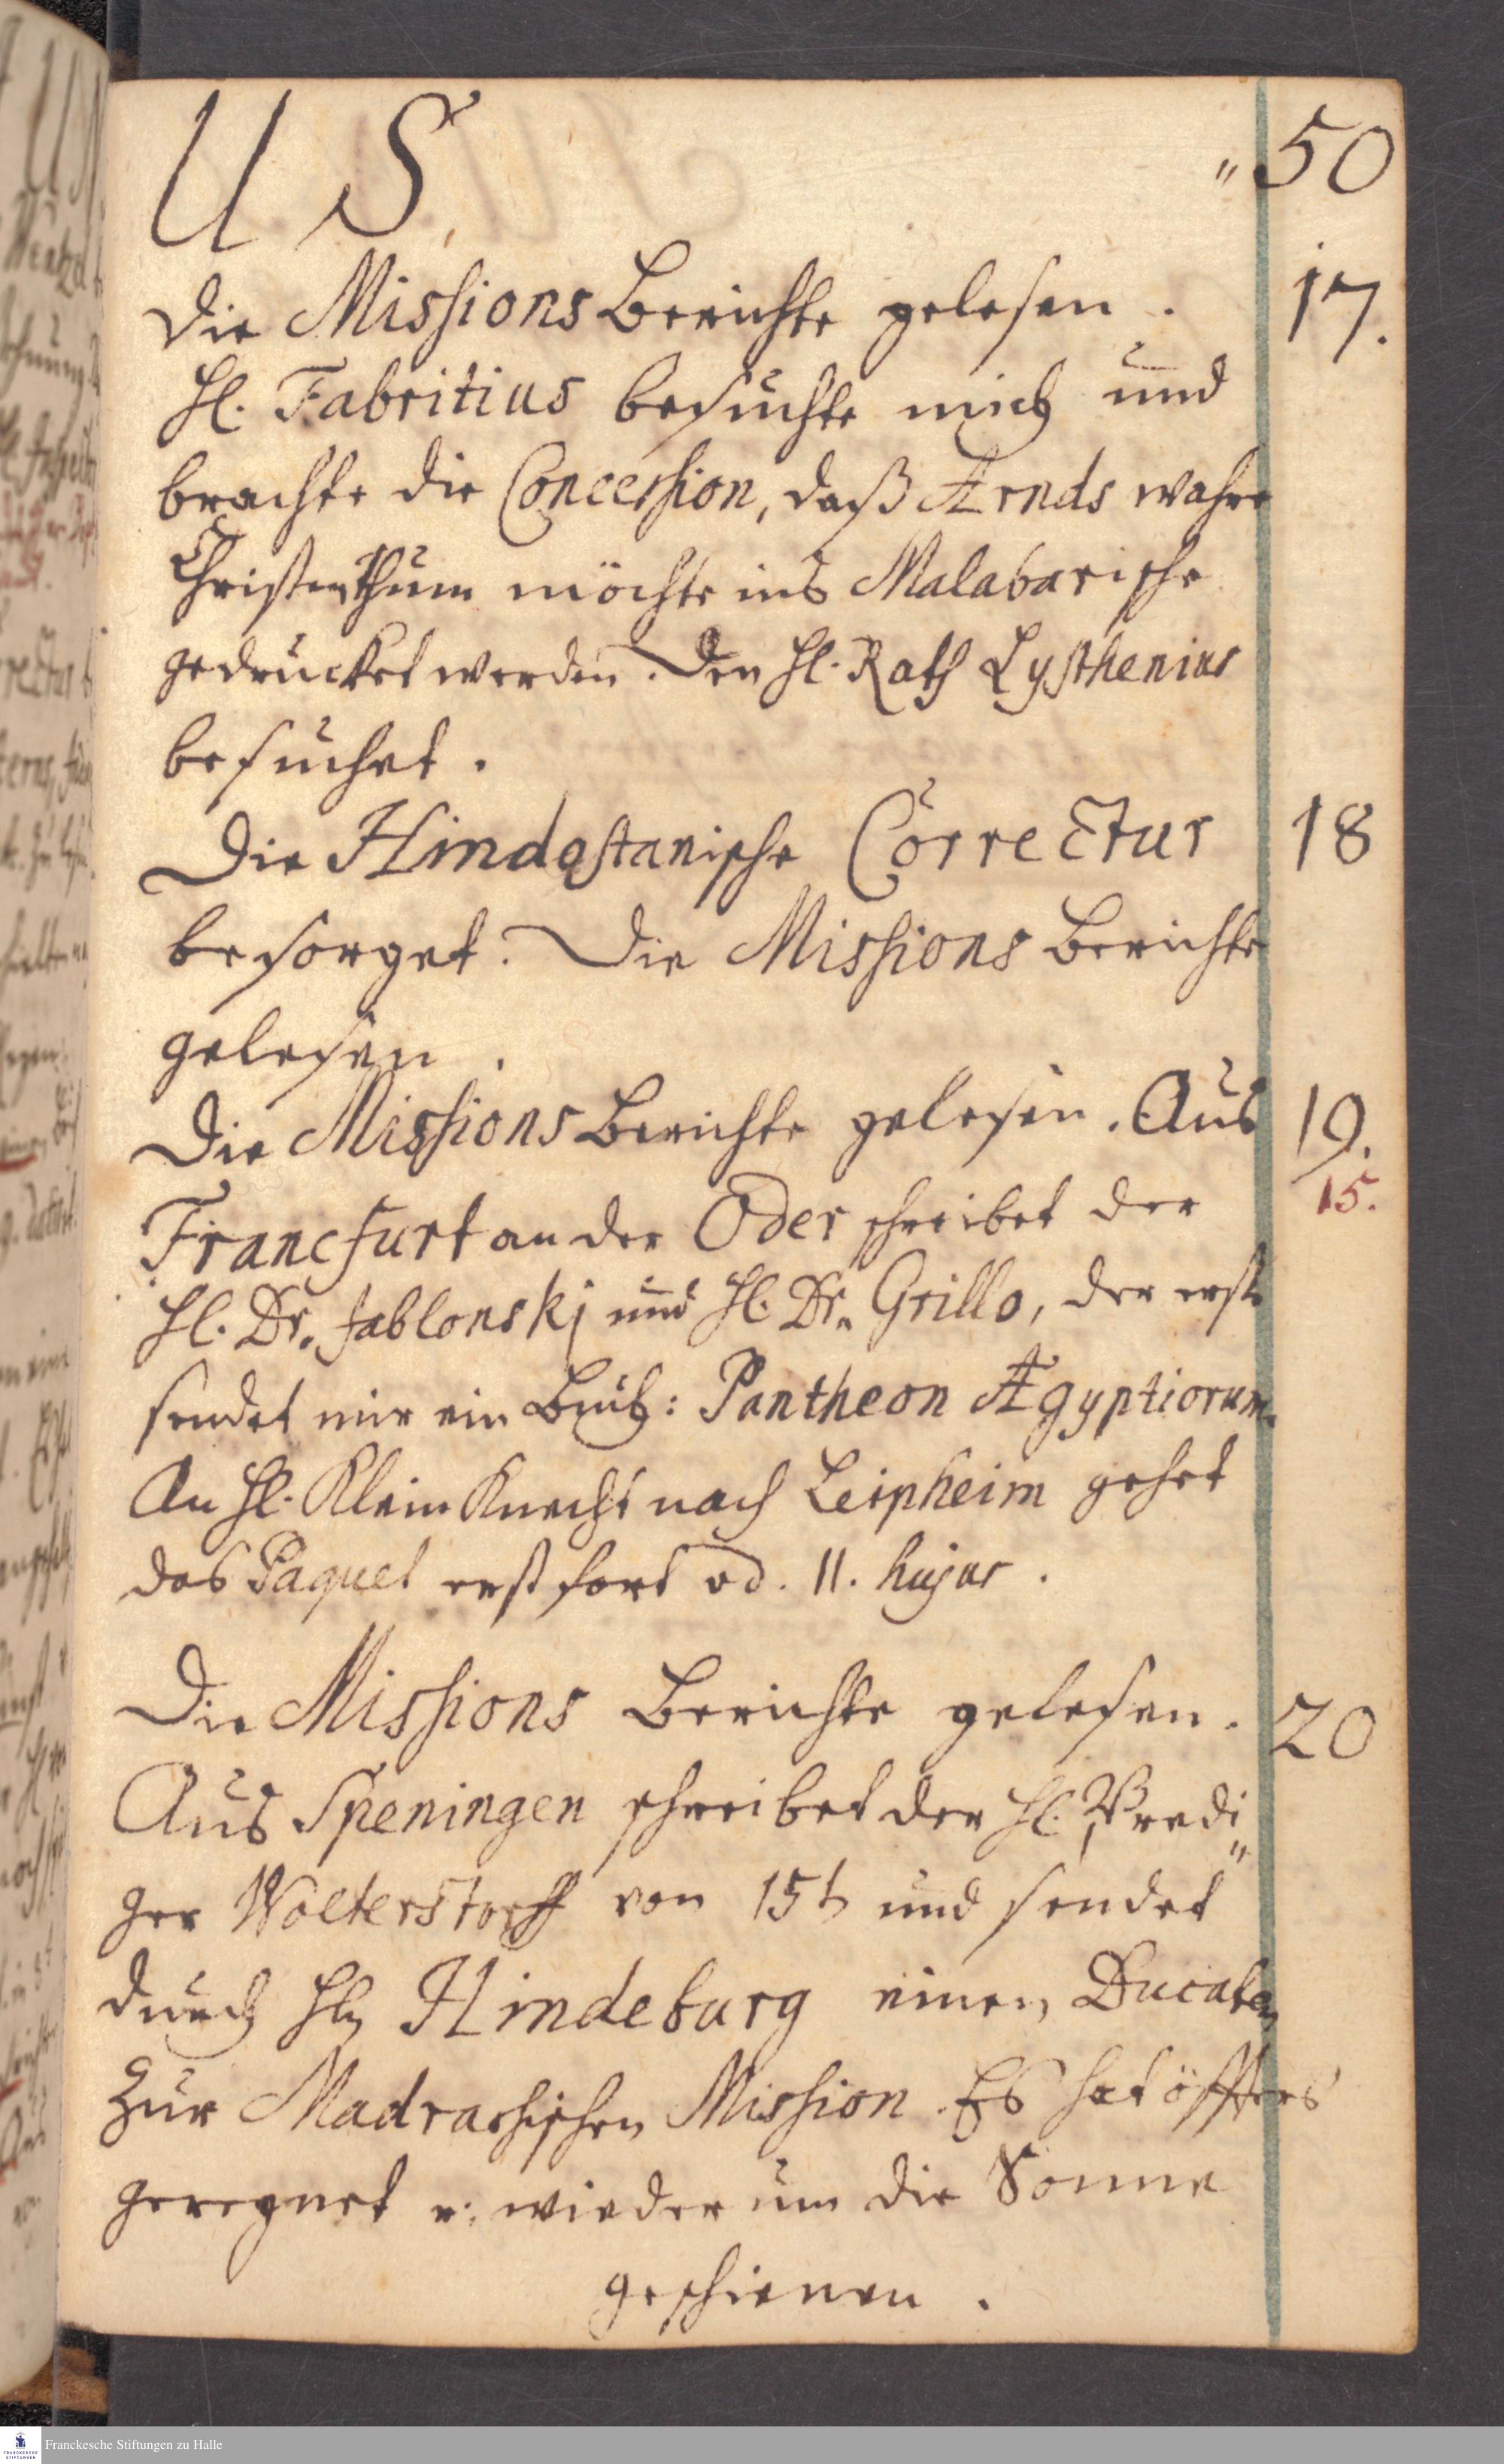 US. " 50
Die Missions Berichte gelesen. 17.
Hl. Fabritius besuchte mich und
brachte die Concession, daß Arnds wahre
Christenthum möchte ins Malabarische
gedrucket werden. Den Hl. Rath Lysthenius
besuchet.
Die Hindostanische Correctur 18
besorget. Die Missions Berichte
gelesen.
Die Missions Berichte gelesen. Aus 19.
Francfurt an der Oder schreibet der 15.
Hl. Dr. Jablonskj und Hl. Dr. Grillo, der erste
sendet mir ein Buch: Pantheon Ægyptiorum.
An Hl. Klein Knecht nach Leipheim gehet
das Paquet erst fort vd. 11. hujus.
Die Missions Berichte gelesen. 20
Aus Speningen schreibet der Hl. Predi"
ger Wolterstorff von 15t und sendet
durch Hln Hindeburg einen Ducaten
zur Madrassischen Mission. Es hat öffters
geregnet u. wieder um die Sonne
geschienen.
Franckesche Stiftungen zu Halle